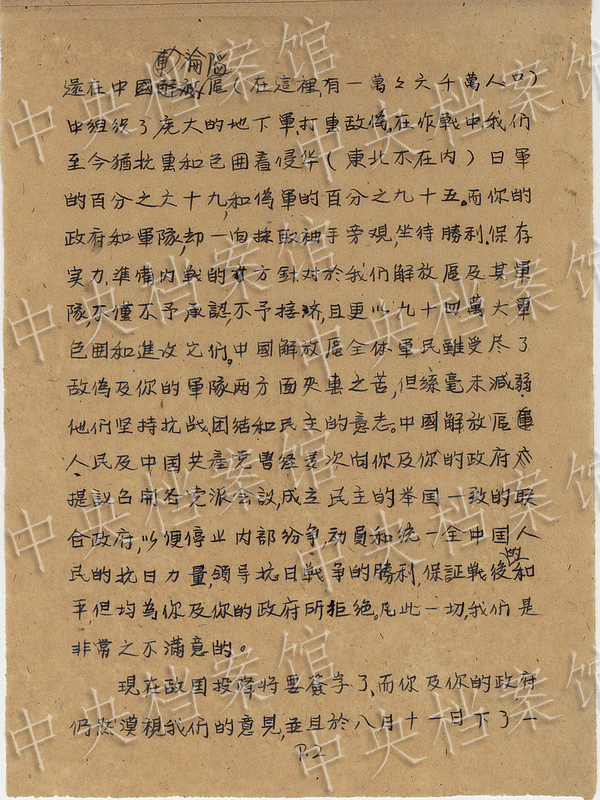 淪陷區
還在中國解放區(在這裡,有一萬々六千萬人口)
中組织了庞大的地下軍,打击敌偽。在作戰中,我们
至今猶抗击和包囲着侵华(東北不在内)日軍
的百分之六十九,和偽軍的百分之九十五。而你的
政府和軍隊,却一向採取袖手旁观,坐待勝利,保存
实力,準備内戰的方針,对於我们解放區及其軍
隊,不僅不予承認,不予接济,且更以九十四萬大軍
包囲和進攻它们。中國解放區全体軍民雖受尽了
敌偽及你的軍隊两方面夾击之苦,但絲毫未減弱
他们坚持抗战、团结和民主的意志。中國解放區
人民及中国共產党曾经委次向你及你的政府
提議召開各党派会議,成立民主的举国一致的联
合政府,以便停止内部纷争,动員和统一全中国人
民的抗日力量,领导抗日戰争的勝利,保証戰後的和
平,但均為你及你的政府所拒绝。凡此一切,我们是
非常之不滿意的。
現在敌国投降将要簽字了,而你及你的政府
仍然漠視我们的意見,並且於八月十一日下了一
P.2
中央档案馆
中央档案馆
中央档案馆
中央档案馆
中央档案馆
中央档案馆
中央档案馆
中央档案馆